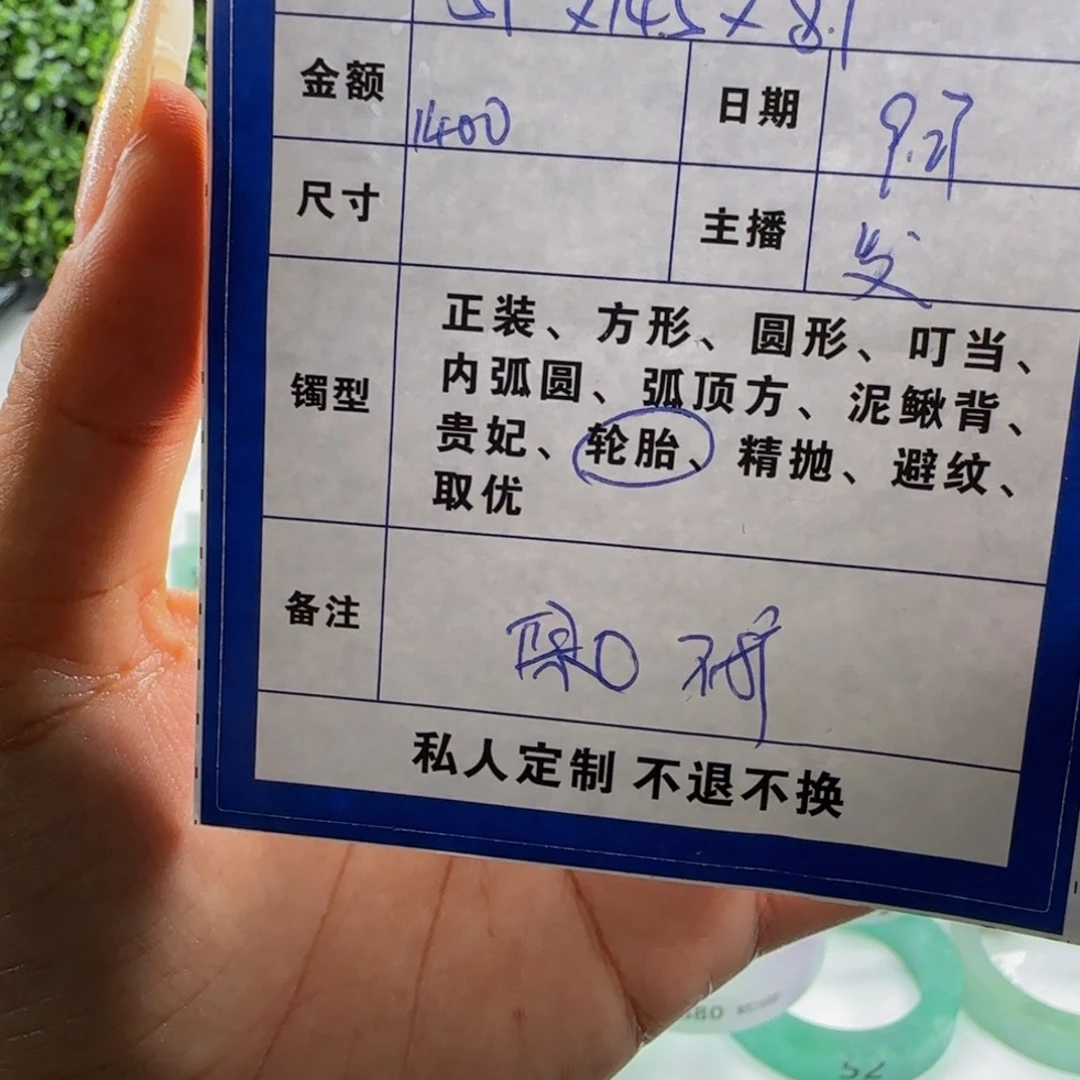 51 x 14.5 x 8.1
金额 1400 日期 9.27
尺寸 主播
镯型
正装、方形、圆形、叮当、
内弧圆、弧顶方、泥鳅背、
贵妃、轮胎、精抛、避纹、
取优
备注
私人定制 不退不换
52